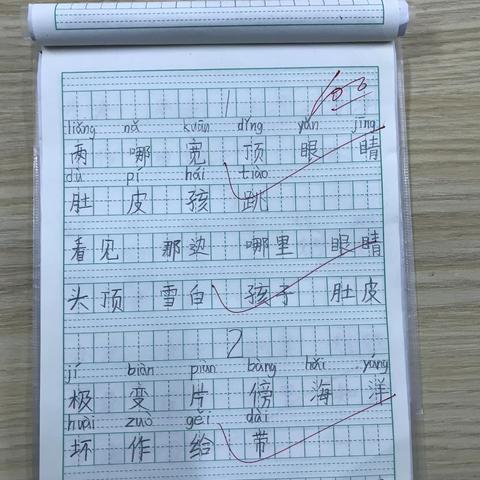 1
100
liǎng nǎ kuān dǐng yǎn jīng
两 哪 宽 顶 眼 睛
dù pí hái tiào
肚 皮 孩 跳
看见 那边 哪里 眼睛
头顶 雪白 孩子 肚皮
2
jí biàn piàn bàng hǎi yáng
极 变 片 傍 海 洋
huài zuò gěi dài
坏 作 给 带